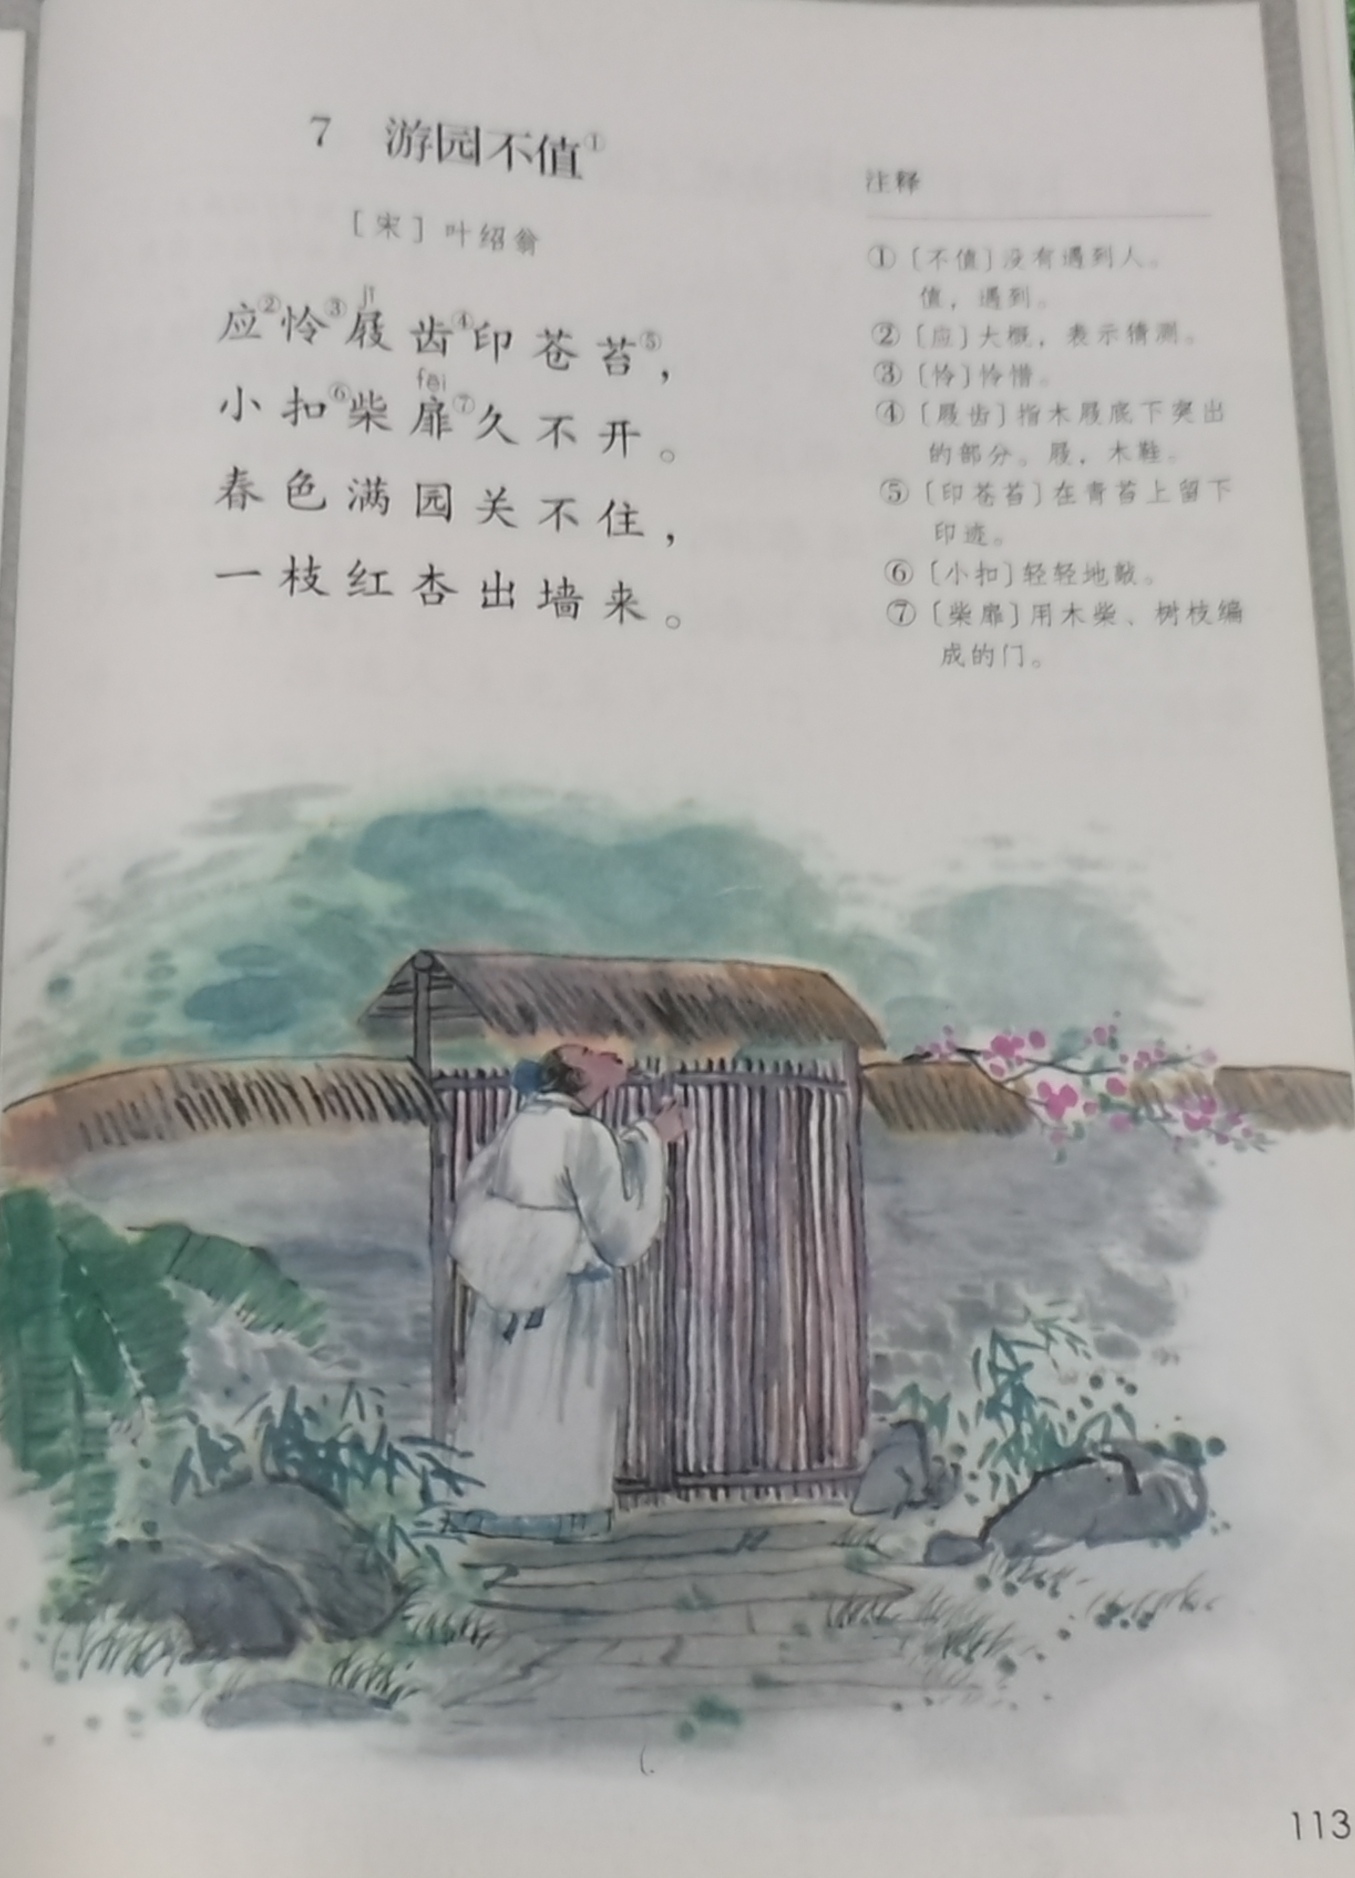 7 游园不值①
[宋] 叶绍翁
应②怜③屐齿④印苍苔⑤，
小扣⑥柴扉⑦久不开。
春色满园关不住，
一枝红杏出墙来。
jī
fēi
注释
①〔不值〕没有遇到人。
值，遇到。
②〔应〕大概，表示猜测。
③〔怜〕怜惜。
④〔屐齿〕指木屐底下突出
的部分。屐，木鞋。
⑤〔印苍苔〕在青苔上留下
印迹。
⑥〔小扣〕轻轻地敲。
⑦〔柴扉〕用木柴、树枝编
成的门。
113